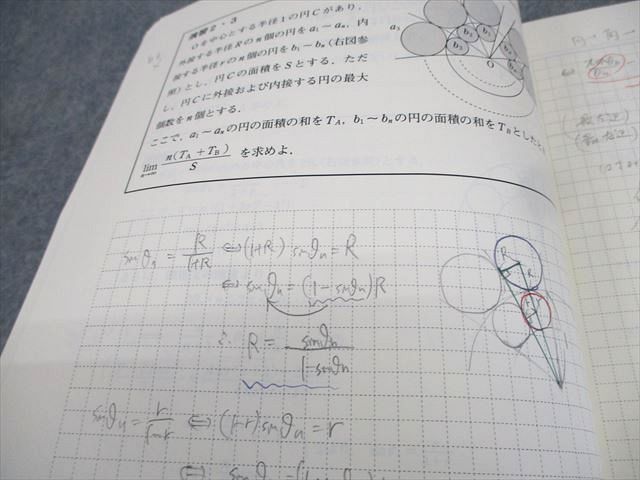 演習2・3
Oを中心とする半径1の円Cがあり,
外接する半径Rのn個の円をa₁~aₙ, 内
接する半径rのn個の円をb₁~bₙ(右図参
照)とし, 円Cの面積をSとする. ただ
し, 円Cに外接および内接する円の最大
個数をn個とする.
ここで, a₁~aₙの円の面積の和をT_A, b₁~bₙの円の面積の和をT_Bとしたと
lim n→∞ n(T_A+T_B)/S を求めよ.
a₃
b₃
b₂
b₁
O
sinθₙ = R/(1+R) ⇔ (1+R) sinθₙ = R
⇔ sinθₙ = (1-sinθₙ)R
∴ R = sinθₙ/(1-sinθₙ)
sinθₙ = r/(1-r) ⇔ (1-r) sinθₙ = r
⇔
R
R
r